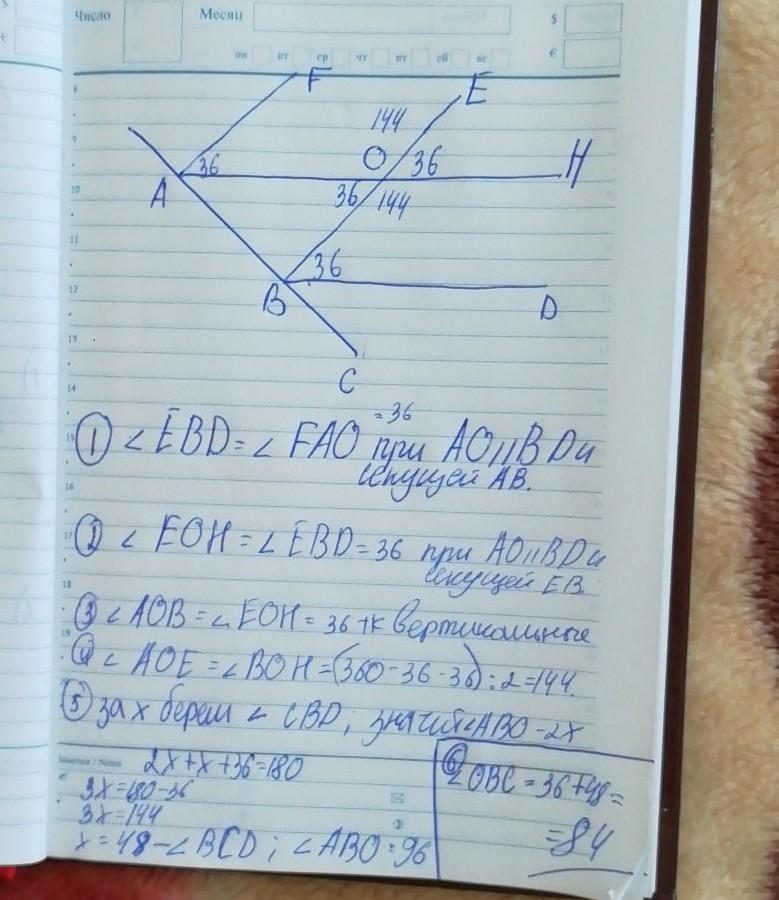 Число
Месяц
$
€
пн вт ср чт пт сб вс
8
F
E
144
9
36
O
36
H
A
10
36
144
11
36
B
12
D
13
C
14
= 36
① ∠ EBD = ∠ FAO при AO || BD и
15
секущей AB.
16
② ∠ EOH = ∠ EBD = 36 при AO || BD и
17
секущей EB
18
③ ∠ AOB = ∠ EOH = 36 т к вертикальные
19
④ ∠ AOE = ∠ BOH = (360 - 36 - 36) : 2 = 144.
⑤ за x берем ∠ CBD, значит ∠ABO - 2x
Заметки / Notes
2x + x + 36 = 180
3x = 180 - 36
3x = 144
x = 48 - ∠ BCD ; ∠ ABO = 96
⑥
∠ OBC = 36 + 48 =
= 84